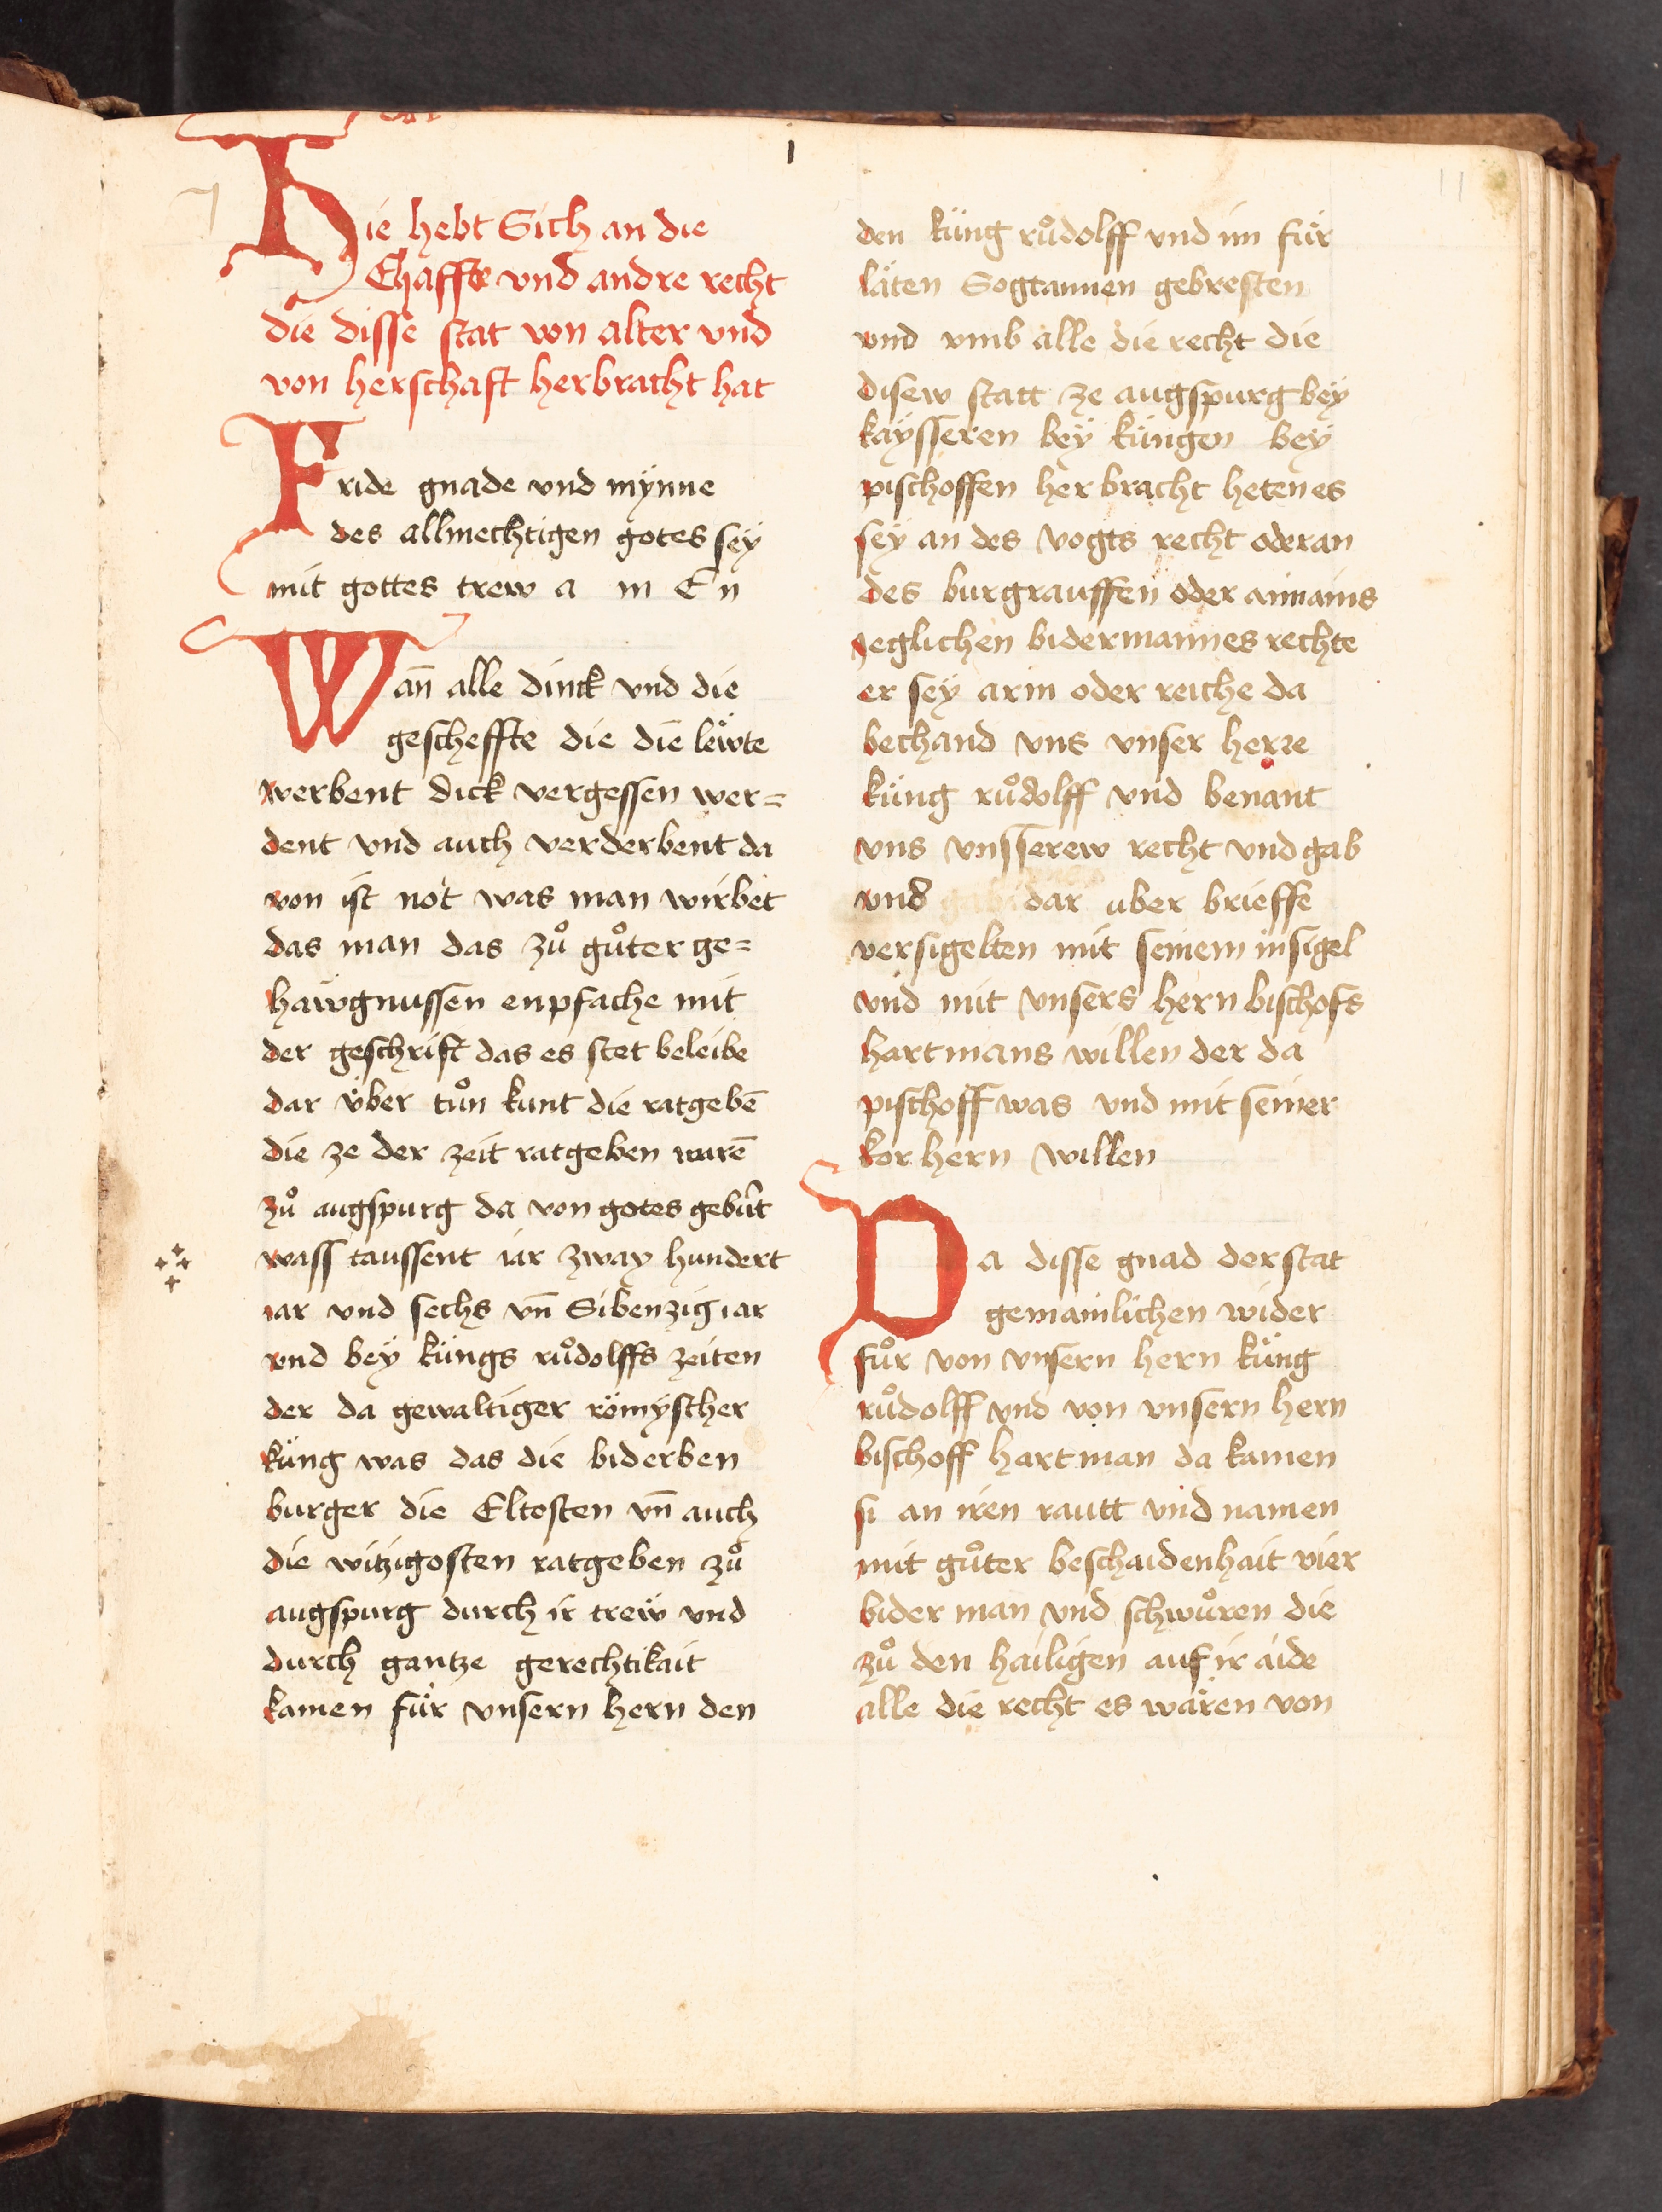 1
11
Hie hebt Sich an die
Ehaffte vnd andre recht
die disse stat von alter vnd
von herschaft herbracht hat
Fride gnade vnd mÿnne
des allmechtigen gotes seÿ
mit gottes trew a m E n
Wañ alle dinck vnd die
gescheffte die die lewte
werbent dick vergessen wer=
dent vnd auch verderbent da
von ist not was man wirbet
das man das zuͦ guͦter ge=
hawgnussen enpfache mit
der geschrift das es stet beleibe
dar v̈ber tuͦn kunt die ratgebē
die ze der zeit ratgeben warē
zuͦ augspurg da von gotes geburt
wass taussent iar zway hundert
iar vnd sechs vn̄ Sibenzig iar
vnd beÿ küngs ruͦdolffs zeiten
der da gewaltiger römÿscher
küng was das die biderben
burger die Eltosten vn̄ auch
die witzigosten ratgeben zuͦ
augspurg durch ir trew vnd
durch gantze gerechtikait
kamen für vnsern hern den
den küng ruͦdolff vnd im für
läten Sogtannen gebresten
vnd vmb alle die recht die
disew statt ze augspurg beÿ
kaÿsseren beÿ küngen beÿ
pischoffen her bracht heten es
seÿ an des vogts recht oder an
des burgrauffen oder ainains
yeglichen bidermannes rechte
er seÿ arm oder reiche da
bechand vns vnser herre
küng ruͦdolff vnd benant
vns vnsserew recht vnd gab
vnd dar uber brieffe
versigelten mit seinem insigel
vnd mit vnsers hern bischofs
hartmans willen der da
pischoff was vnd mit seiner
kor hern willen
Da disse gnad der stat
gemainlichen wider
fuͦr von vnsern hern küng
ruͦdolff vnd von vnsern hern
bischoff hartman da kamen
si an iren rautt vnd namen
mit guͦter beschaidenhait vier
bider man vnd schwuͦren die
zuͦ den hailigen auf ir aide
alle die recht es wären von